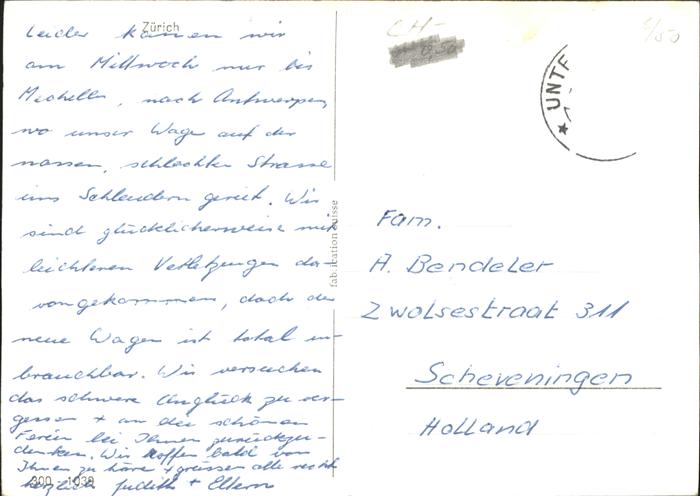 Zürich
Leider kamen wir
am Mittwoch nur bis
Mechelen, nach Antwerpen,
wo unser Wage auf der
nassen, schlechten Strasse
ins Schleudern geriet. Wir
sind glücklicherweise mit
leichteren Verletzungen da-
vongekommen, doch der
neue Wagen ist total un-
brauchbar. Wir versuchen
das schwere Unglück zu ver-
gessen + an die schönen
Ferien bei Ihnen zurückzu-
denken. Wir hoffen bald von
Ihnen zu höre + grüssen alle recht
herzlich Judith + Eltern
300 - 1039
fabrication suisse
CH-
* UNTF
Fam.
A. Bendeler
Zwolsestraat 311
Scheveningen
Holland